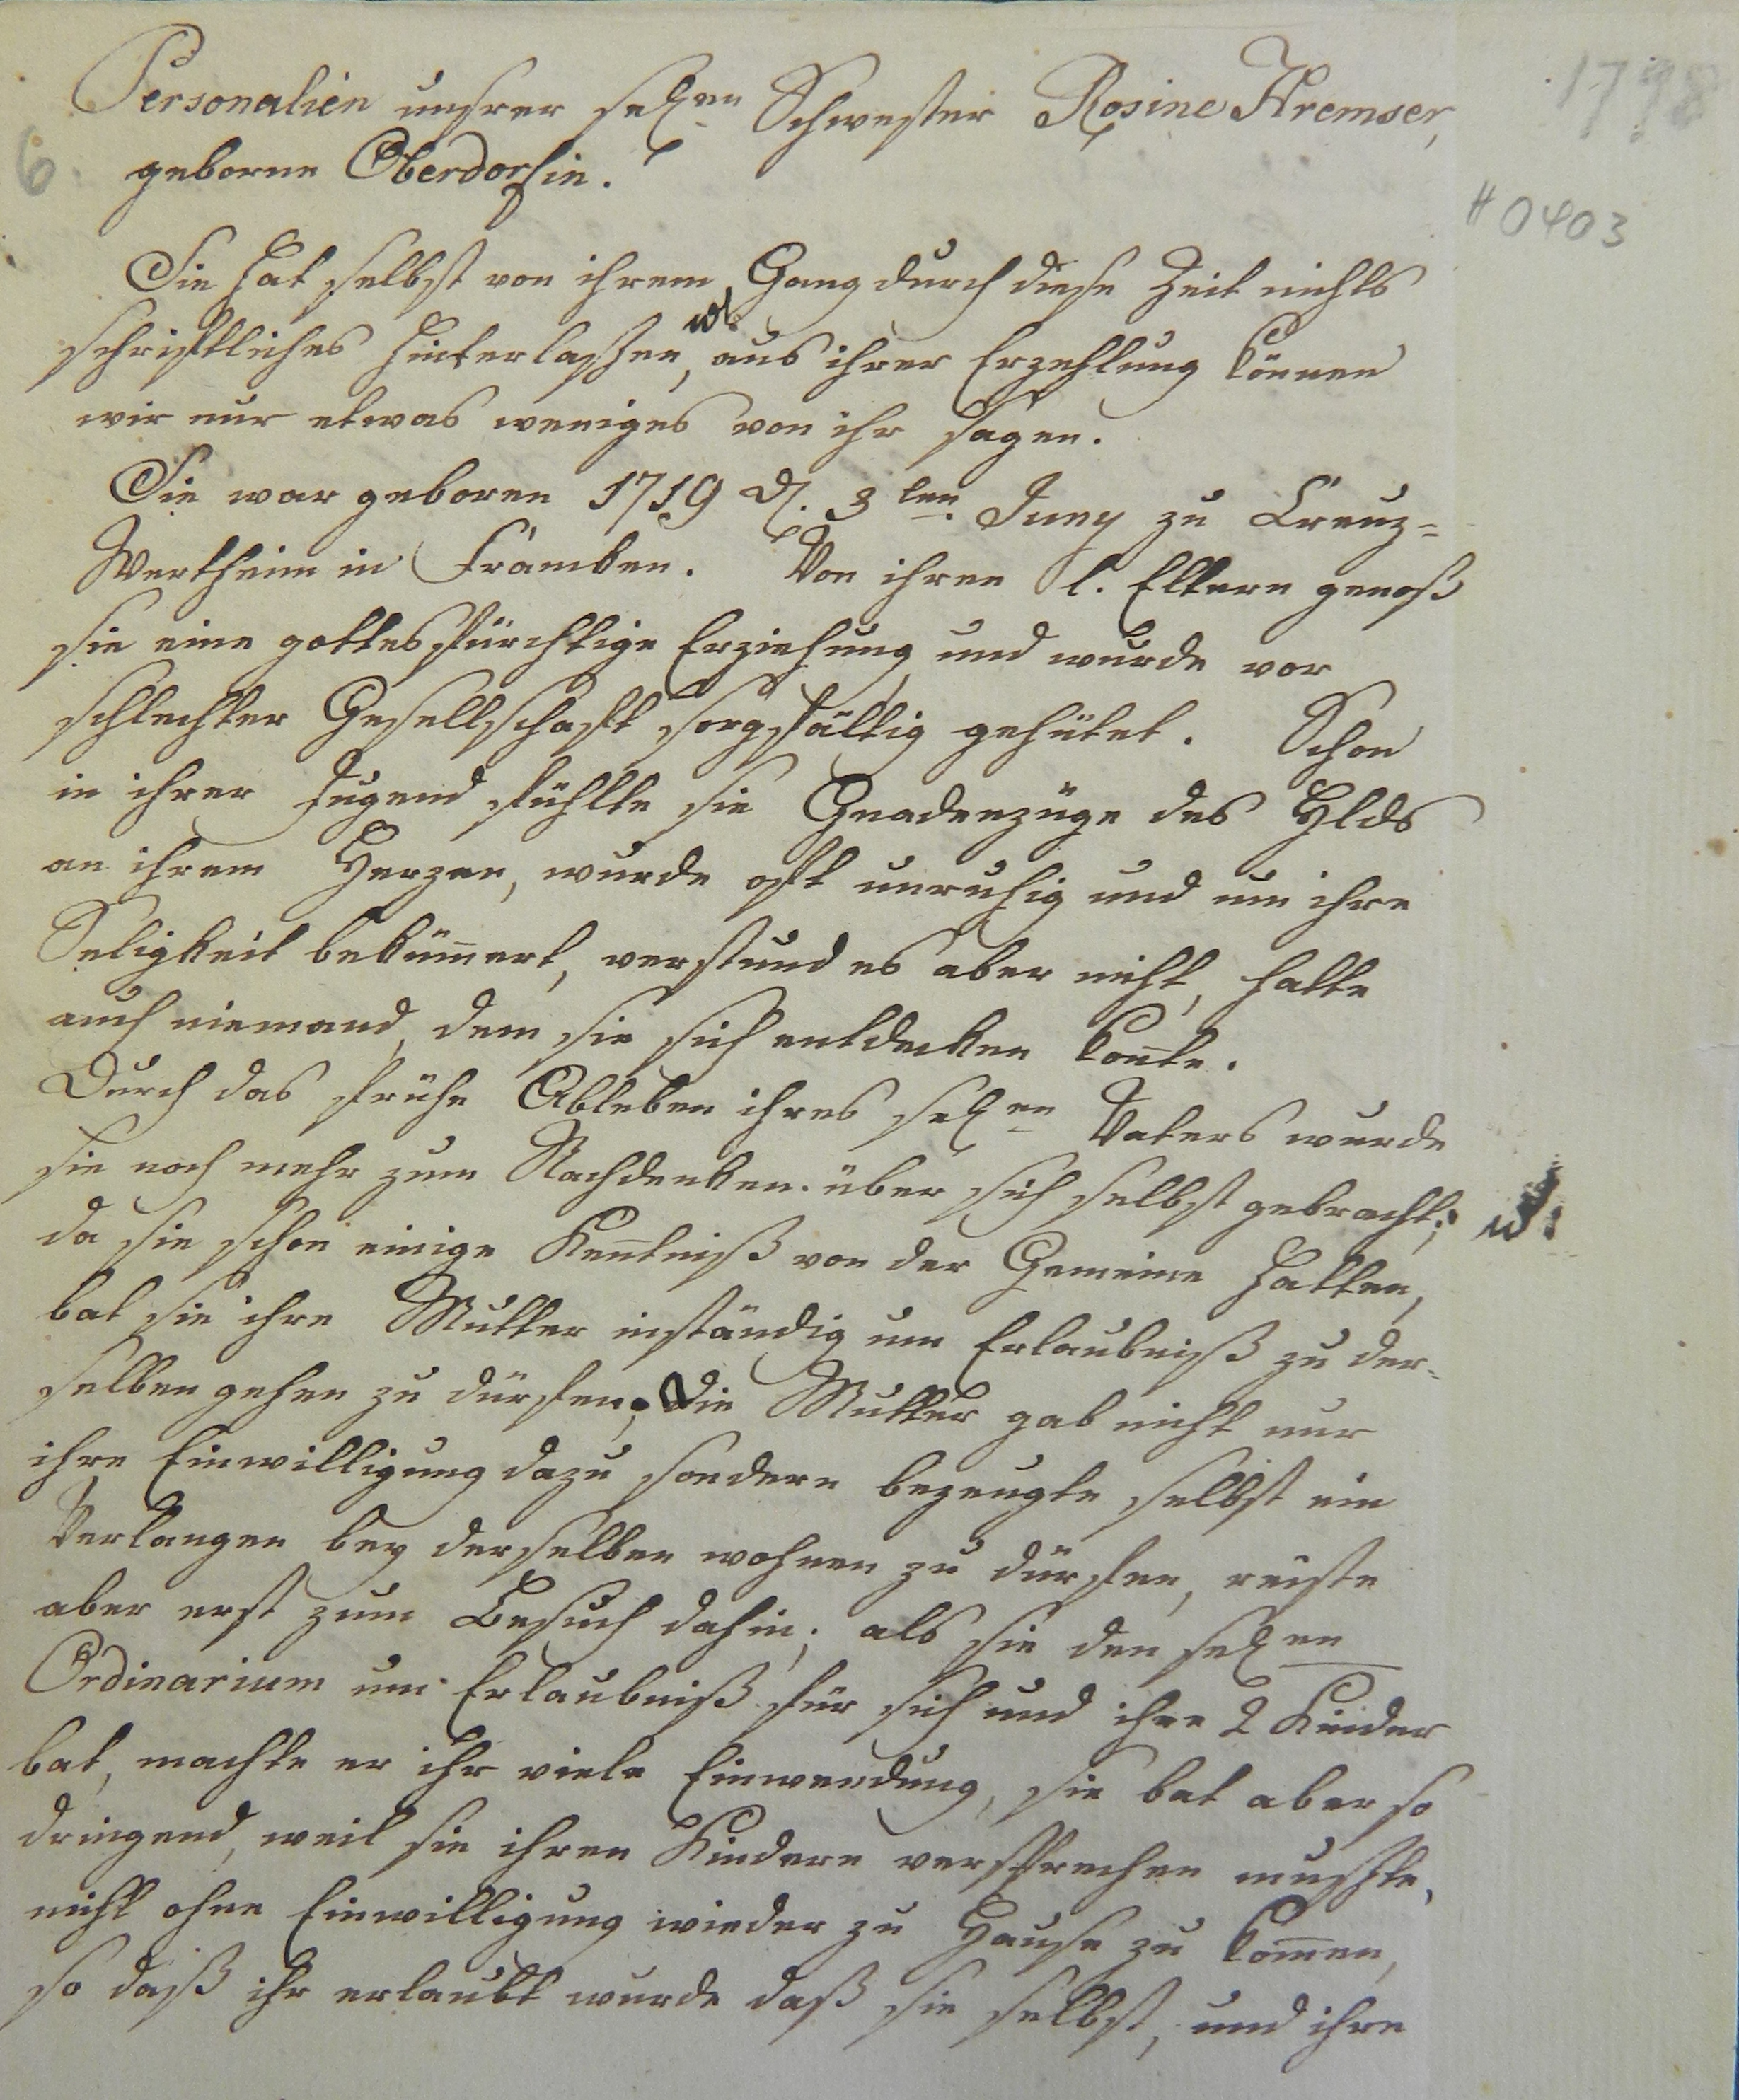 1798
6
# 0403
Personalien unsrer sel.en Schwester Rosine Kremser,
geborne Oberdorfin.
Sie hat selbst von ihrem Gang durch diese Zeit nichts
schriftliches hinterlaßen, u. aus ihrer Erzehlung können
wir nur etwas weniges von ihr sagen.
Sie war geboren 1719 d. 3ten Juny zu Creuz-
Wertheim in Francken. Von ihren l. Eltern genoß
sie eine gottesfürchtige Erziehung und wurde vor
schlechter Gesellschaft sorgfältig gehütet. Schon
in ihrer Jugend fühlte sie Gnadenzüge des Hlds
an ihrem Herzen, wurde oft unruhig und um ihre
Seligkeit bekum̄ert, verstund es aber nicht, hatte
auch niemand, dem sie sich entdecken kon̄te.
Durch das frühe Ableben ihres sel.en Vaters wurde
sie noch mehr zum Nachdenken über sich selbst gebracht; u.
da sie schon einige Ken̄tniß von der Gemeine hatten,
bat sie ihre Mutter inständig um Erlaubniß zu der-
selben gehen zu dürfen; Die Mutter gab nicht nur
ihre Einwilligung dazu sondern bezeugte selbst ein
Verlangen bey derselben wohnen zu dürfen, reiste
aber erst zum Besuch dahin; als sie den sel.en
Ordinarium um Erlaubniß für sich und ihre 2 Kinder
bat, machte er ihr viele Einwendung, sie bat aber so
dringend, weil sie ihren Kindern versprechen mußte,
nicht ohne Einwilligung wieder zu Hause zu kom̄en,
so daß ihr erlaubt wurde daß sie selbst, und ihre